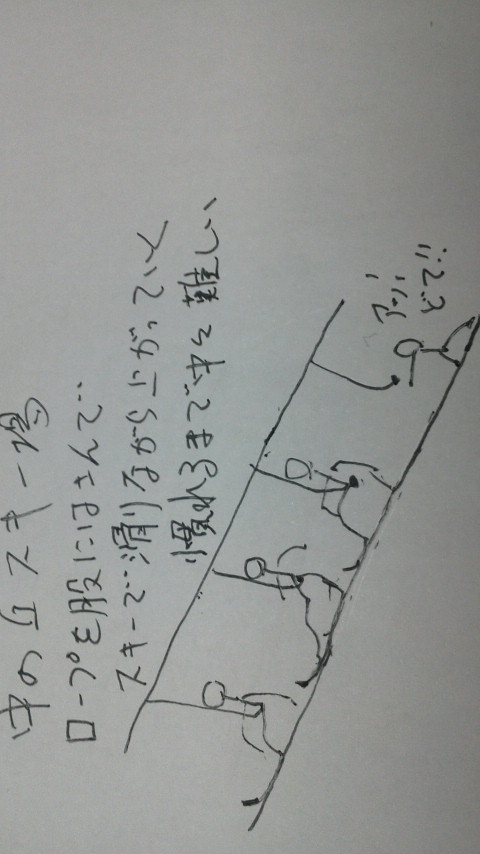 の丘スキー場
ロープを股にはさんで…
スキーで…滑りながら上がっていく
慣れるまでチョ難しい